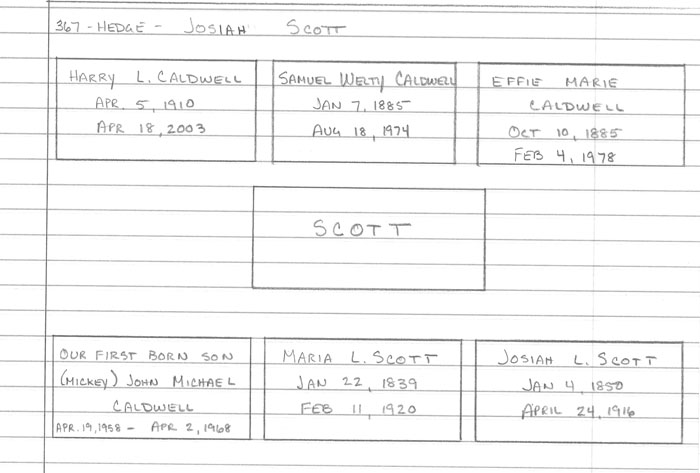 367 - HEDGE - JOSIAH SCOTT
HARRY L. CALDWELL
APR. 5, 1910
APR 18, 2003
SAMUEL WELTY CALDWELL
JAN 7, 1885
AUG 18, 1974
EFFIE MARIE
CALDWELL
OCT 10, 1885
FEB 4, 1978
SCOTT
OUR FIRST BORN SON
(MICKEY) JOHN MICHAEL
CALDWELL
APR. 19, 1958 - APR 2, 1968
MARIA L. SCOTT
JAN 22, 1839
FEB 11, 1920
JOSIAH L. SCOTT
JAN 4, 1850
APRIL 24, 1916